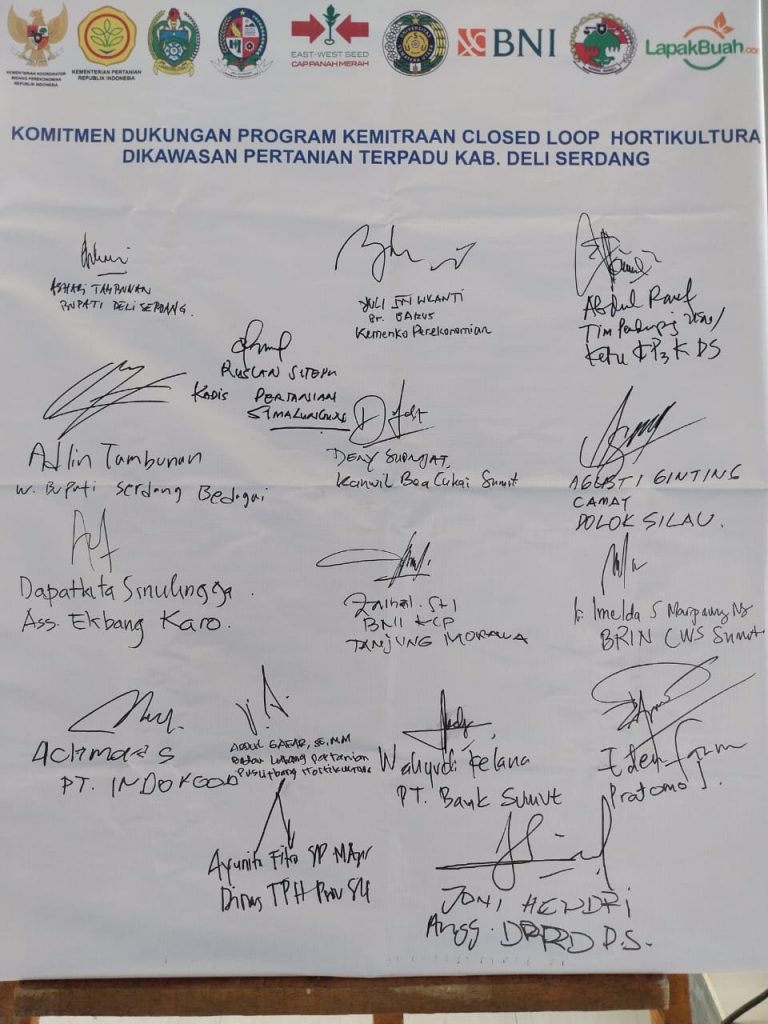 KEMENTERIAN KOORDINATOR
BIDANG PEREKONOMIAN
REPUBLIK INDONESIA
KEMENTERIAN PERTANIAN
REPUBLIK INDONESIA
EAST-WEST SEED
CAP PANAH MERAH
BNI
LapakBuah.com
KOMITMEN DUKUNGAN PROGRAM KEMITRAAN CLOSED LOOP HORTIKULTURA
DIKAWASAN PERTANIAN TERPADU KAB. DELI SERDANG
ASHARI TAMBUNAN
BUPATI DELI SERDANG.
JULI SRI WKANTI
Br. BARUS
Kemenko Perekonomian
Abdul Rauf
Tim
Ketu KP3K DS
RUSLAN SITEPU
KADIS PERTANIAN
SIMALUNGUN
Adlin Tambunan
W. Bupati Serdang Bedagai
DENY SURAJAT,
Kanwil Bea Cukai Sumut
AGUSTI GINTING
CAMAT
DOLOK SILAU.
Dapatkita Sinulingga.
Ass. Ekbang Karo.
Zaibal.
BNI KCP
TANJUNG MORAWA
Ir. Imelda S Marpaung
BRIN CWS Sumut
Achmad S
PT. INDOFOOD
ABDUL GAFAR, SE, MM
Badan Litbang Pertanian
Puslitbang Hortikultura
Wahyudi Kelana
PT. Bank Sumut
Pratomo
Ayunita Fitri SP MAgr
Dinas TPH Prov SU
JONI HENDRI
Angg. DPRD D.S.